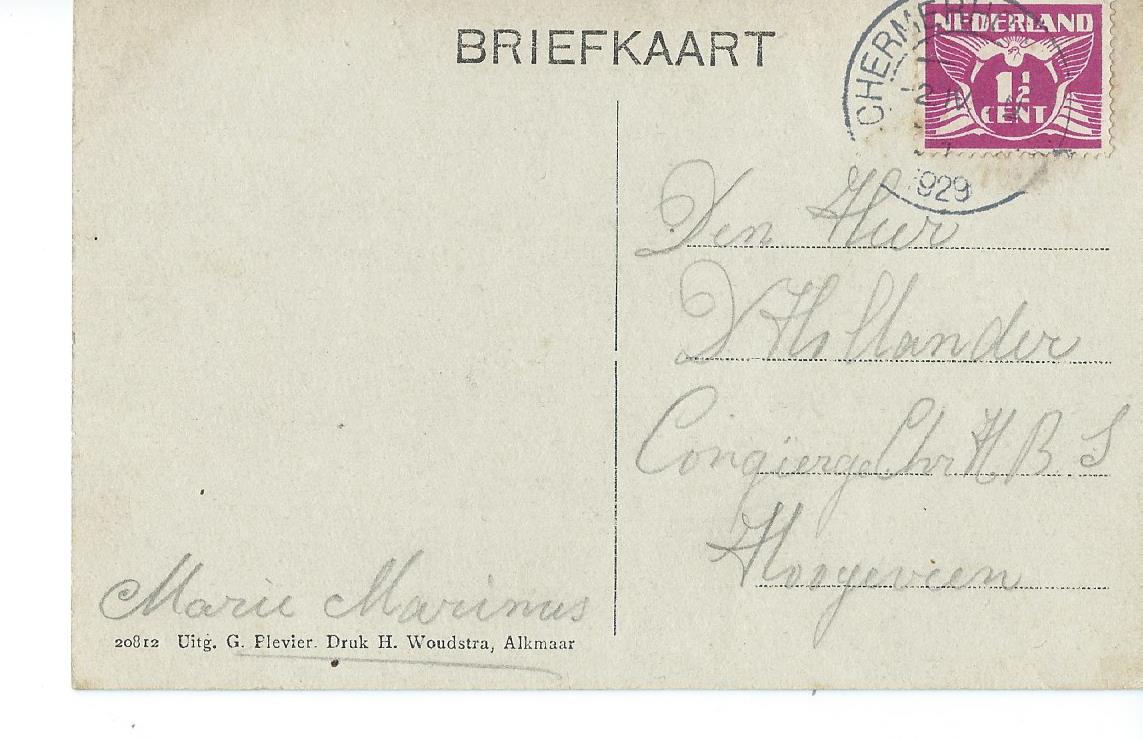 BRIEFKAART
NEDERLAND
1½
CENT
CHERMERH
1929
Den Heer
D Hollander
Congierge Chr H B S
Hoogeveen
Marie Marinus
20812 Uitg. G. Plevier. Druk H. Woudstra, Alkmaar